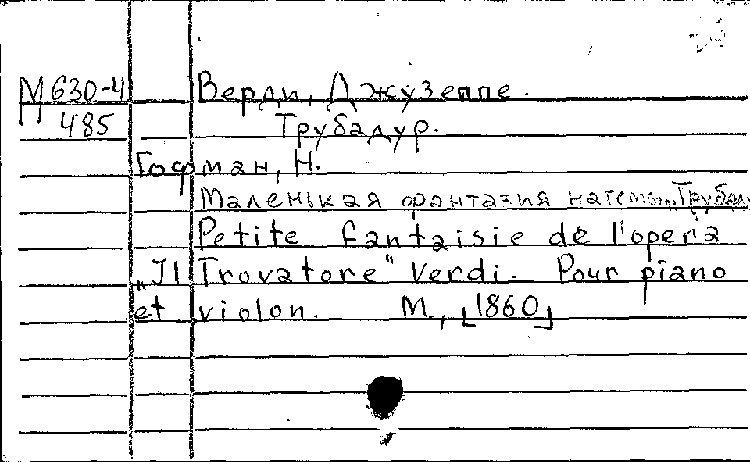 М 630-4 Верди, Джузеппе.
485 Трубадур.
Гофман, Н.
Маленькая фантазия на темы „Трубад
Petite fantaisie de l'opera
„Il Trovatore" Verdi. Pour piano
et violon. М., [1860]